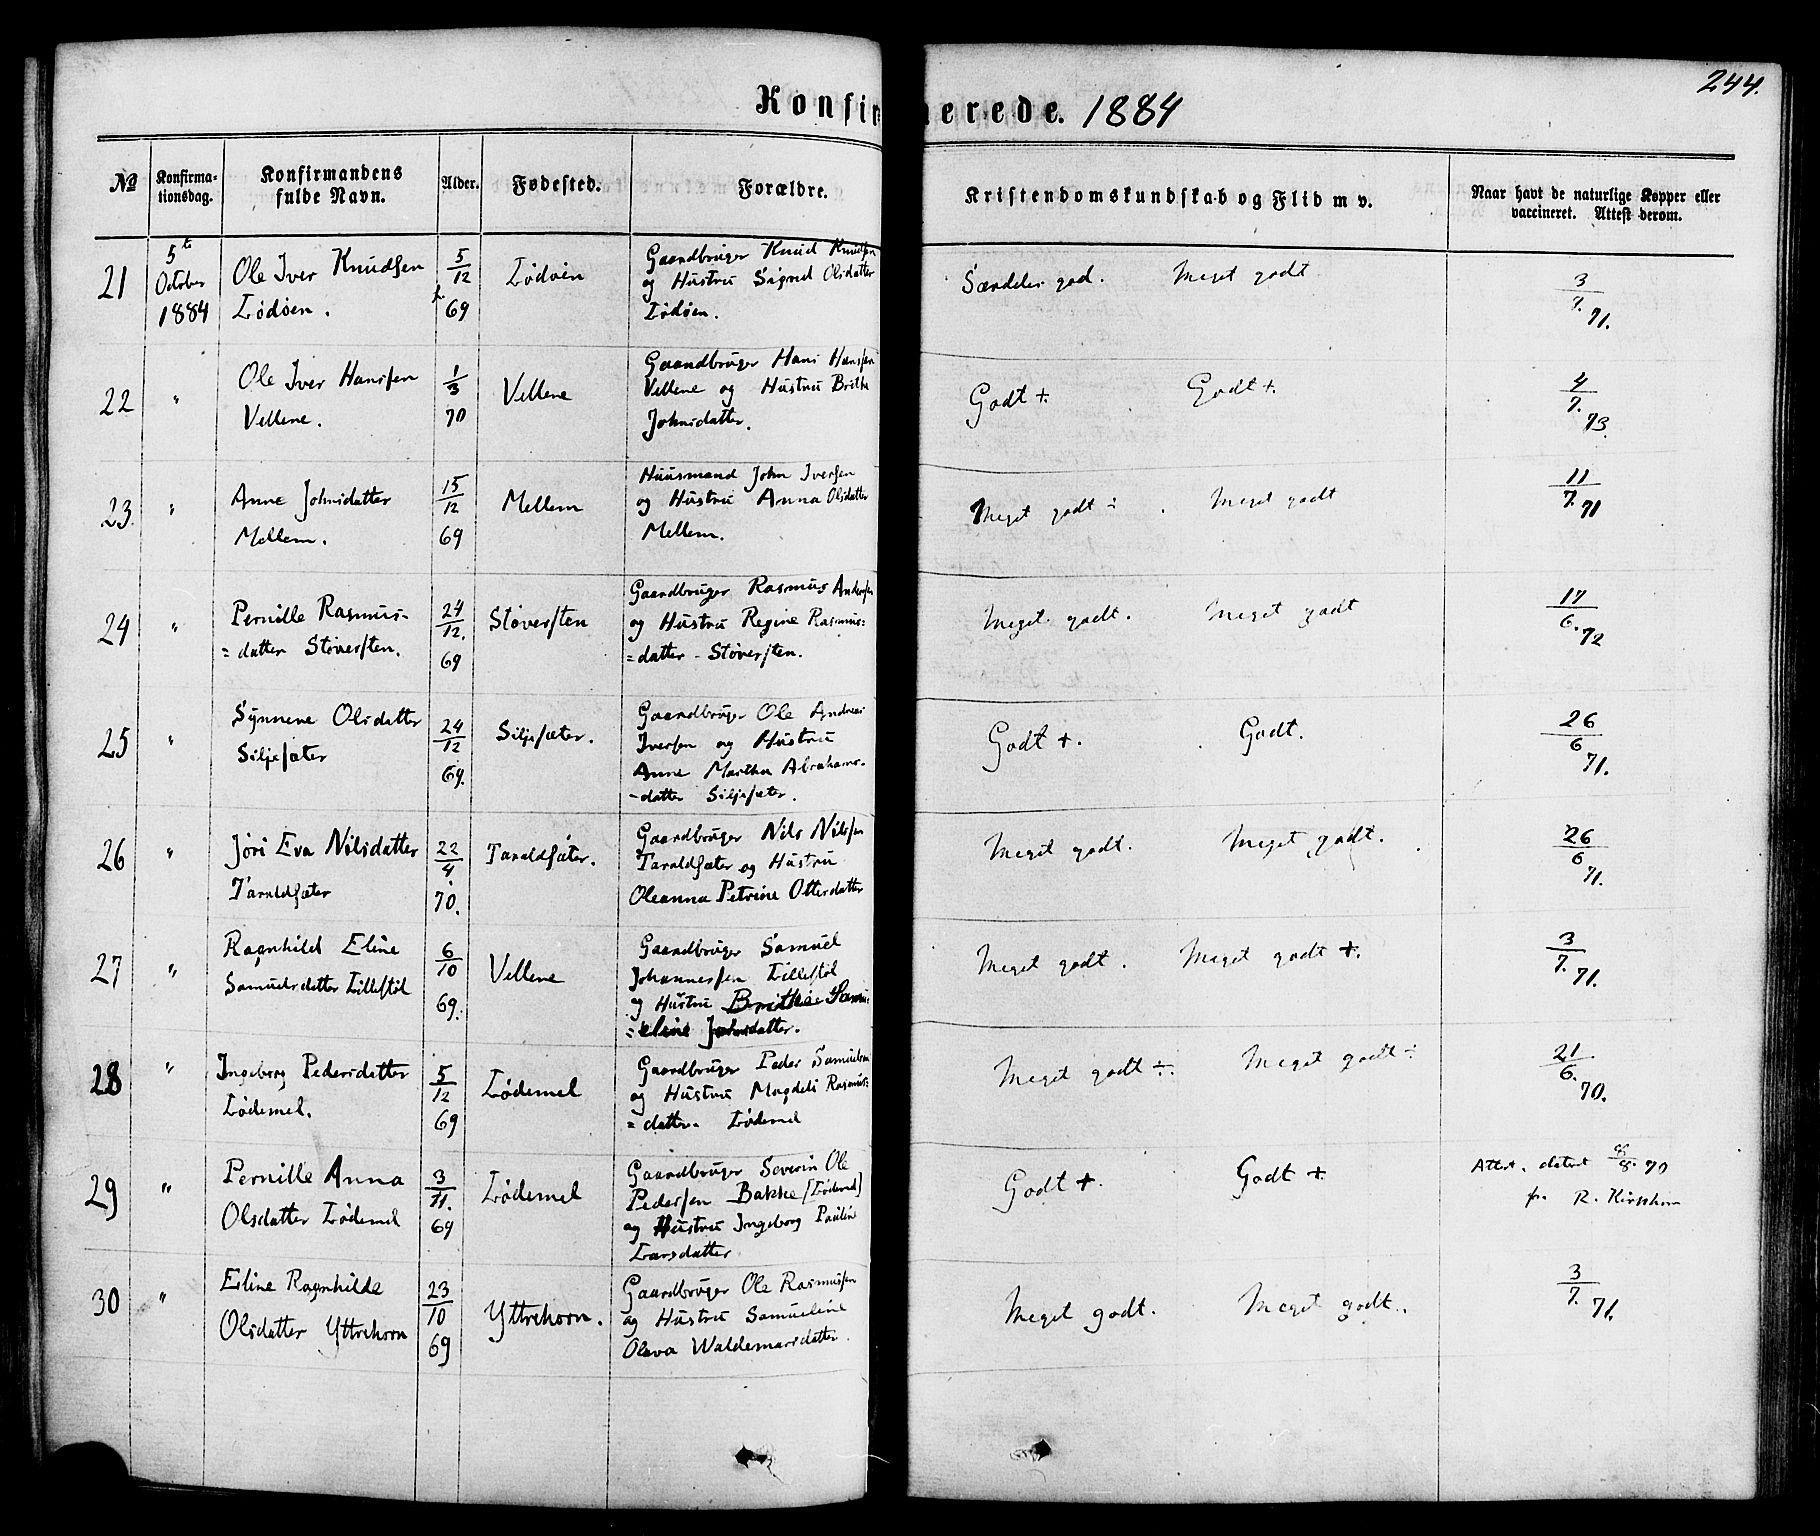 244.
Konfir merede. 1884
№ Konfirma-tionsdag. Konfirmandens fulde Navn. Alder. Fødested. Forældre. Kristendomskundskab og Flid m v. Naar havt de naturlige Kopper eller vaccineret. Attest derom.
21 5te October 1884 Ole Iver Knudsen Lødøen. 5/12 69 Lødøen
Gaardbruger Knud Knudsen
og Hustru Sigrid Olsdatter
Lødøen.
Særdeles god. Meget godt 3/7. 71.
22 " Ole Iver Hanssen Vellene. 1/3 70 Vellene
Gaardbruger Hans Hanssen
Vellene og Hustru Brithe
Johnsdatter.
Godt +. Godt +. 4/7. 73.
23. " Anne Johnsdatter Mellem. 15/12 69 Mellem
Huusmand John Iversen
og Hustru Anna Olsdatter
Mellem.
Meget godt ÷ . Meget godt 11/7. 71
24 " Pernille Rasmus-
=datter Stöversten. 24/12. 69 Stöversten
Gaardbruger Rasmus Andersen
og Hustru Regine Rasmus=
=datter - Stöversten.
Meget godt. Meget godt 17/6. 72
25 " Synneve Olsdatter Siljesæter 24/12 69. Siljesæter.
Gaardbruger Ole Andreas
Iversen og Hustru
Anne Martha Abrahams-
-datter Siljesæter.
Godt +. Godt. 26/6 71.
26 " Jöri Eva Nilsdatter Taraldsæter 22/4 70. Taraldsæter.
Gaardbruger Nils Nilssen
Taraldsæter og Hustru
Oleanna Petrine Ottersdatter
Meget godt. Meget godt. 26/6 71.
27 " Ragnhild Eline Samuelsdatter Lillestöl 6/10 69. Vellene
Gaardbruger Samuel
Johannessen Lillestöl
og Hustru Brithe Samu=
=eline Johnsdatter.
Meget godt. Meget godt +. 3/7. 71.
28 " Ingeborg Pedersdatter Lödemel. 5/12 69 Lödemel
Gaardbruger Peder Samuelsen
og Hustru Magdeli Rasmus=
=datter. Lödemel
Meget godt ÷. Meget godt ÷ 21/6. 70.
29 " Pernille Anna Olsdatter Lödemel 3/11. 69 Lödemel
Gaardbruger Severin Ole
Pedersen Bakke [Lödemel]
og Hustru Ingeborg Pauline
Larsdatter
Godt +. Godt +. Attest. dateret 8/8. 70
fra R.
30 " Eline Ragnhilde Olsdatter Yttrehorn 23/10 69 Yttrehorn.
Gaardbruger Ole Rasmussen
og Hustru Samueline
Oleva Waldemarsdatter.
Meget godt. Meget godt. 3/7. 71.